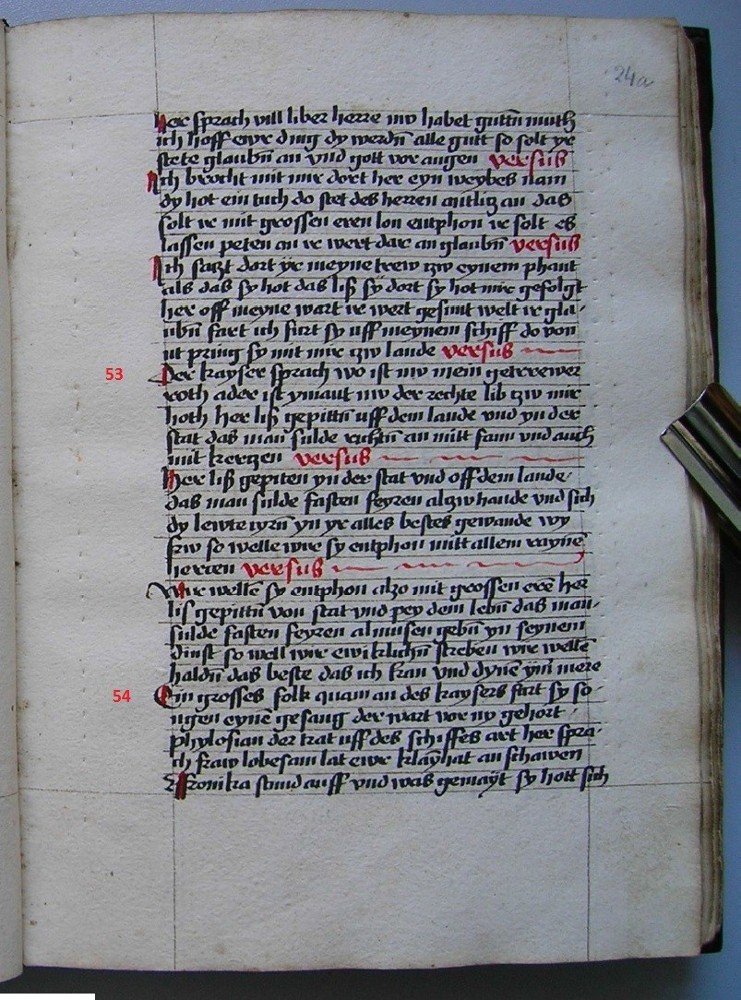 24a
Her sprach vill liber herre nw habet guttn muth
ich hoff ewr ding dy werdn alle gutt so solt yr
stete glaubn an vnd gott vor augen versus
Ich brocht mit mir dort her eyn weybes nam
dy hot ein tuch do stet des herren antlitz an das
solt ir mit grossen eren lon entphon ir solt es
lassen peten an ir wert dar an glaubn versus
Ich satzt dort yr meyne trew tzw eynem phant
als das sy hot das liß sy dort sy hot mir gefolgt
her off meyne wart ir wert gesunt welt ir gla-
ubn fart ich furt sy uff meynem schiff do von
ut pring sy mit mir tzw lande versus
53 Der kayser sprach wo ist nw mein getrewer
roth ader ist ymant nw der rechte lib tzw mir
hoth her liß gepittn uff dem lande vnd yn der
stat das man sulde richtn an mitt fam vnd auch
mit kertzen versus
Her liß gepiten yn der stat vnd off dem lande
das man sulde fasten feyren altzw hande vnd sich
dy lewte yn yr alles bestes gewande wy
frw so welle wir sy entphon mitt allem rayne
hertzen versus
Wir welle sy entphon alzo mit grossen ere her
lis gepittn von stat vnd pey dem lebn das man
sulde fasten feyren almusen gebn yn seynem
dinst so woll wir ewiklichn streben wir welle
haldn das beste das ich kan vnd dyne ym mere
54 Ein grosses folk quam an des kaysers fart sy so-
ngen eyne gesang der wart vor ny gehort
phylosian der trat uff des schiffes ort her spra-
ch fraw lobesam lat ewr klayhat an schawen
Fronika stund auff vnd was gemayt sy hott sich